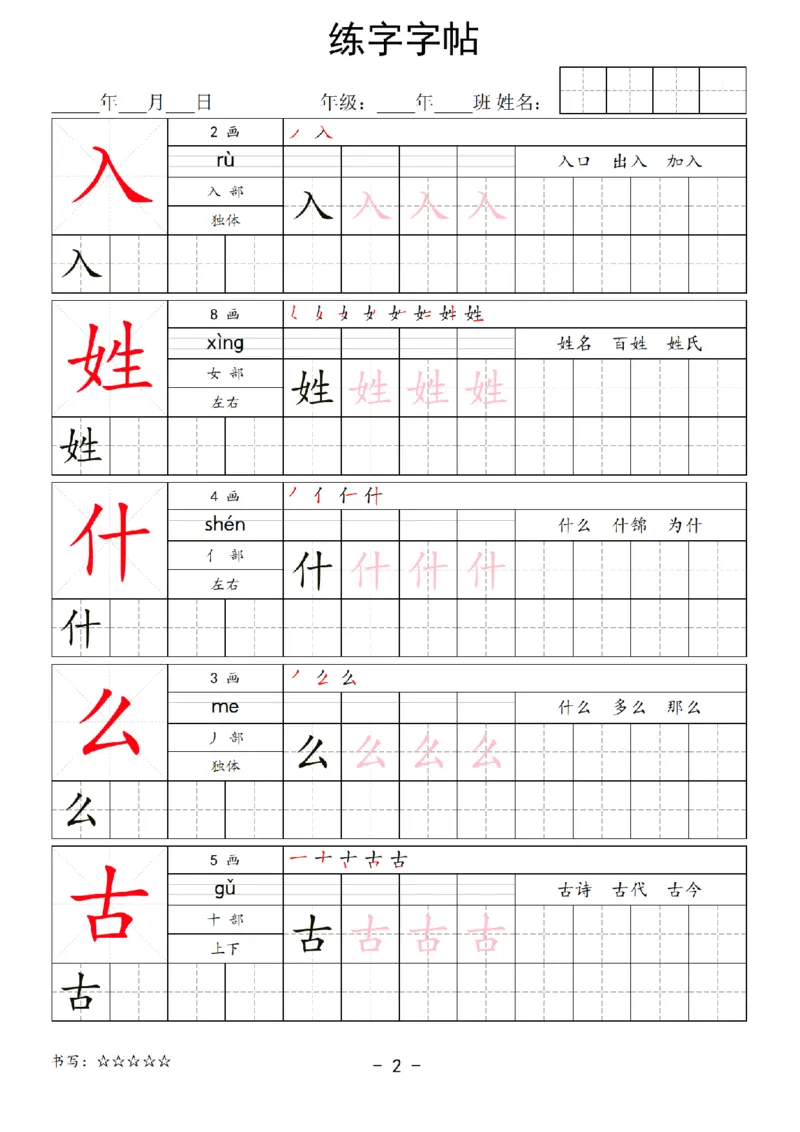 练字字帖
_____年___月___日 年级：____年____班 姓名：
入 2 画 丿 入
rù 入口 出入 加入
入 部 入 入 入 入
独体
入
姓 8 画
xìng 姓名 百姓 姓氏
女 部 姓 姓 姓 姓
左右
姓
什 4 画 丿 亻 仁 什
shén 什么 什锦 为什
亻 部 什 什 什 什
左右
什
么 3 画 丿 么 么
me 什么 多么 那么
丿 部 么 么 么 么
独体
么
古 5 画 一 十 古 古
gǔ 古诗 古代 古今
十 部 古 古 古 古
上下
古
书写：☆☆☆☆☆
- 2 -